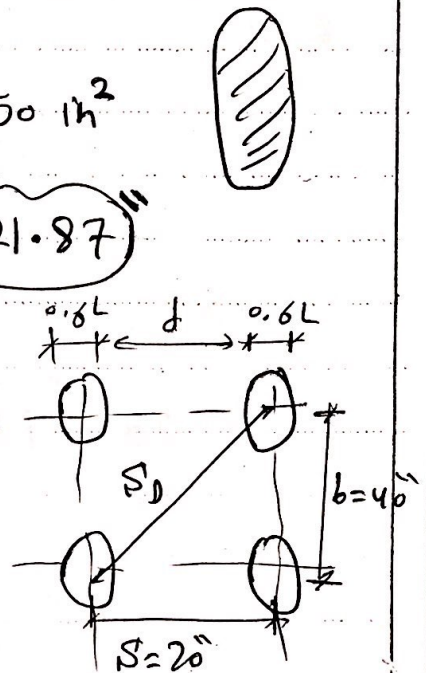 50 in²
21.87"
0.6L d 0.6L
S_D
b=40"
S=20"